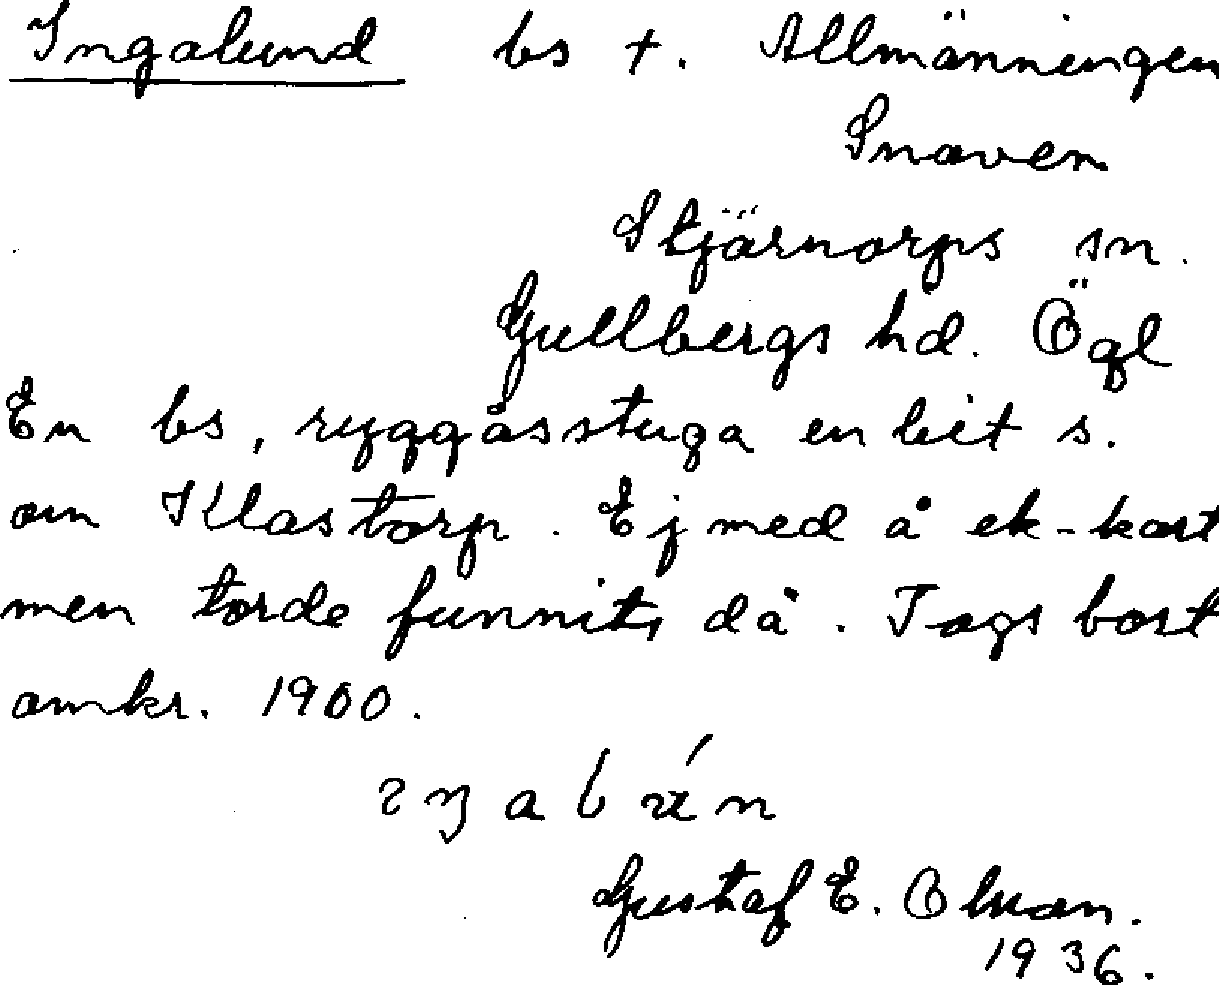 Ingalund bs +. Allmänningen
Snaven
Stjärnorps sn.
Gullbergs hd. Ögl
En bs, ryggåsstuga en bit s.
om Klastorp. Ej med å ek-kart
men torde funnits då. Togs bort
omkr. 1900.
Gustaf E. Olsson.
1936.